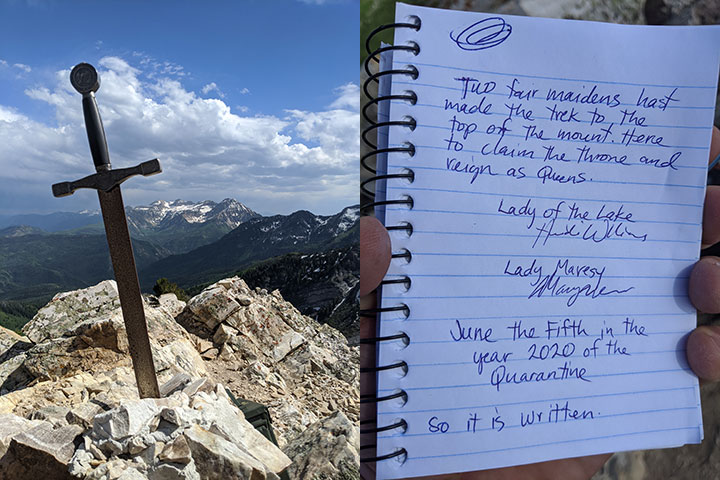 Two fair maidens hast
made the trek to the
top of the mount. Here
to claim the throne and
reign as Quens.
Lady of the Lake
Lady Maresy
June the Fifth in the
year 2020 of the
Quarantine
so it is written.